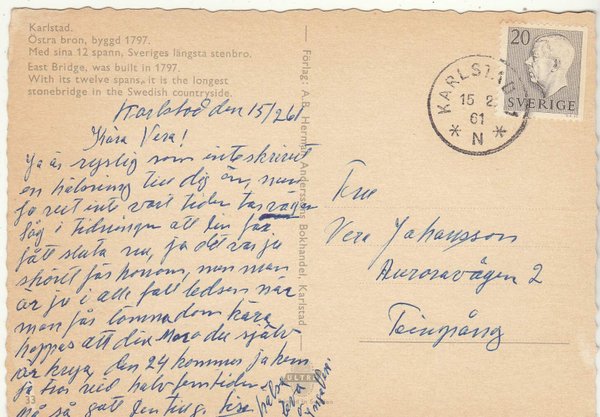 Karlstad.
Östra bron, byggd 1797.
Med sina 12 spann, Sveriges längsta stenbro.
East Bridge, was built in 1797.
With its twelve spans, it is the longest
stonebridge in the Swedish countryside.
Karlstad den 15/2 61
Kära Vera!
Ja är ryslig som inte skrivit
en hälsning till dig än, men
ja vet int vart tiden tar vägen
såg i tidningen att din far
fått sluta nu, ja det var ju
skönt för honom, men man
är ju i alle fall ledsen när
man får lämna dom kära
hoppas att din Mor o du själv
är krya, den 24 kommer ja hem
ja tror vid halvfemtiden
så gått den
hälsa
Förlag: A.B. Herman Anderssons Bokhandel, Karlstad
20
SVERIGE
KARLSTAD 1
15 2
61
* N *
Fru
Vera Johansson
Auroravägen 2
Teingsång
ULTRA
33